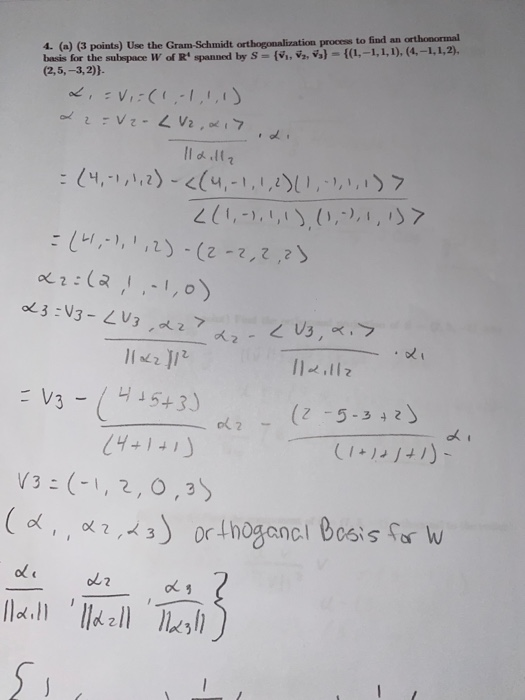 4. (a) (3 points) Use the Gram-Schmidt orthogonalization process to find an orthonormal
basis for the subspace W of R⁴ spanned by S = {v⃗₁, v⃗₂, v⃗₃} = {(1,−1,1,1), (4,−1,1,2),
(2,5,−3,2)}.
α₁ = V₁ = (1,-1,1,1)
α₂ = V₂ - <V₂,α₁> / ||α₁||₂ · α₁
= (4,-1,1,2) - <(4,-1,1,2)(1,-1,1,1)> / <(1,-1,1,1),(1,-1,1,1)>
= (4,-1,1,2) - (2-2,2,2)
α₂ = (2,1,-1,0)
α₃ = V₃ - <V₃,α₂> / ||α₂||² α₂ - <V₃,α₁> / ||α₁||₂ · α₁
= V₃ - (4+5+3) / (4+1+1) α₂ - (2-5-3+2) / (1+1+1+1) α₁
V₃ = (-1,2,0,3)
(α₁,α₂,α₃) orthoganal Basis for W
α₁ / ||α₁||, α₂ / ||α₂||, α₃ / ||α₃|| }